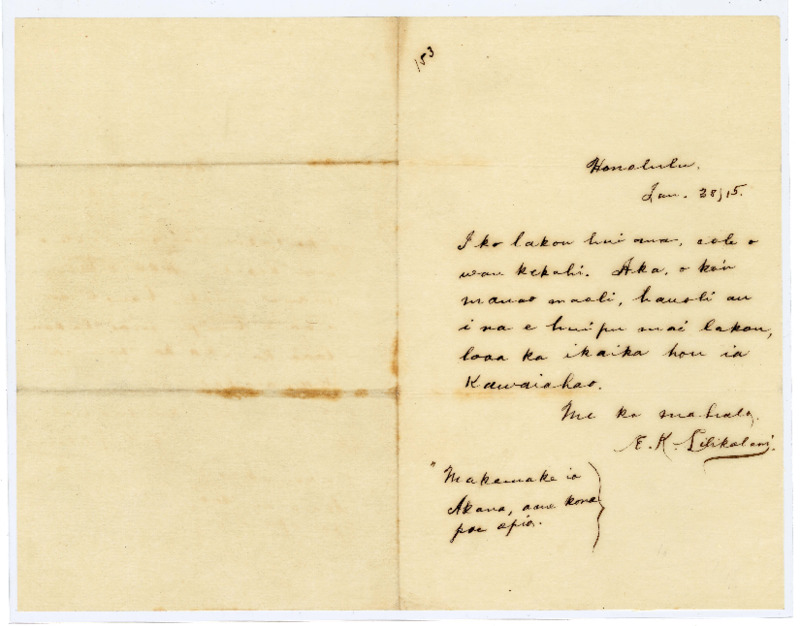 153
Honolulu.
Jan. 28/15.
I ko lakou hui ana, aole o
wau kekahi. Aka, o ko'u
manao maoli, hauoli au
i na e huipu mai lakou,
loaa ka ikaika hou ia
Kawaiahao.
Me ka mahalo,
E. K. Lilikalani.
"Makemake ia
Akana, ame kona
poe opio.